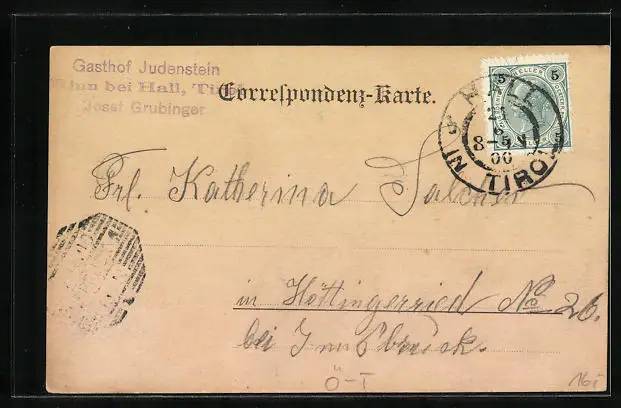 Gasthof Judenstein
Rinn bei Hall, Tirol
Josef Grubinger
Correspondenz-Karte.
5 HELLER 5
5 5
HALL
8-
00
IN TIROL
Frl. Katherina
in Höttingerried No 26.
bei Innsbruck.
Ö-T